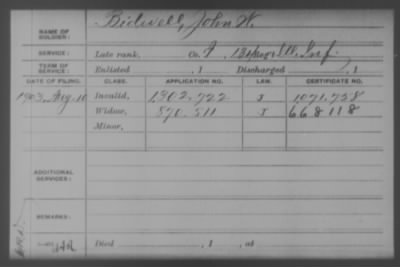 NAME OF SOLDIER: Bidwell, John W.
SERVICE: Late rank, Co. F, 134 Reg't Ill. Inf.
TERM OF SERVICE: Enlisted , 1 Discharged , 1
DATE OF FILING. CLASS. APPLICATION NO. LAW. CERTIFICATE NO.
1903, Aug. 10 Invalid, 1.302.722 1071.758
Widow, 570.511 668118
Minor,
ADDITIONAL SERVICES:
REMARKS:
Died , 1 , at